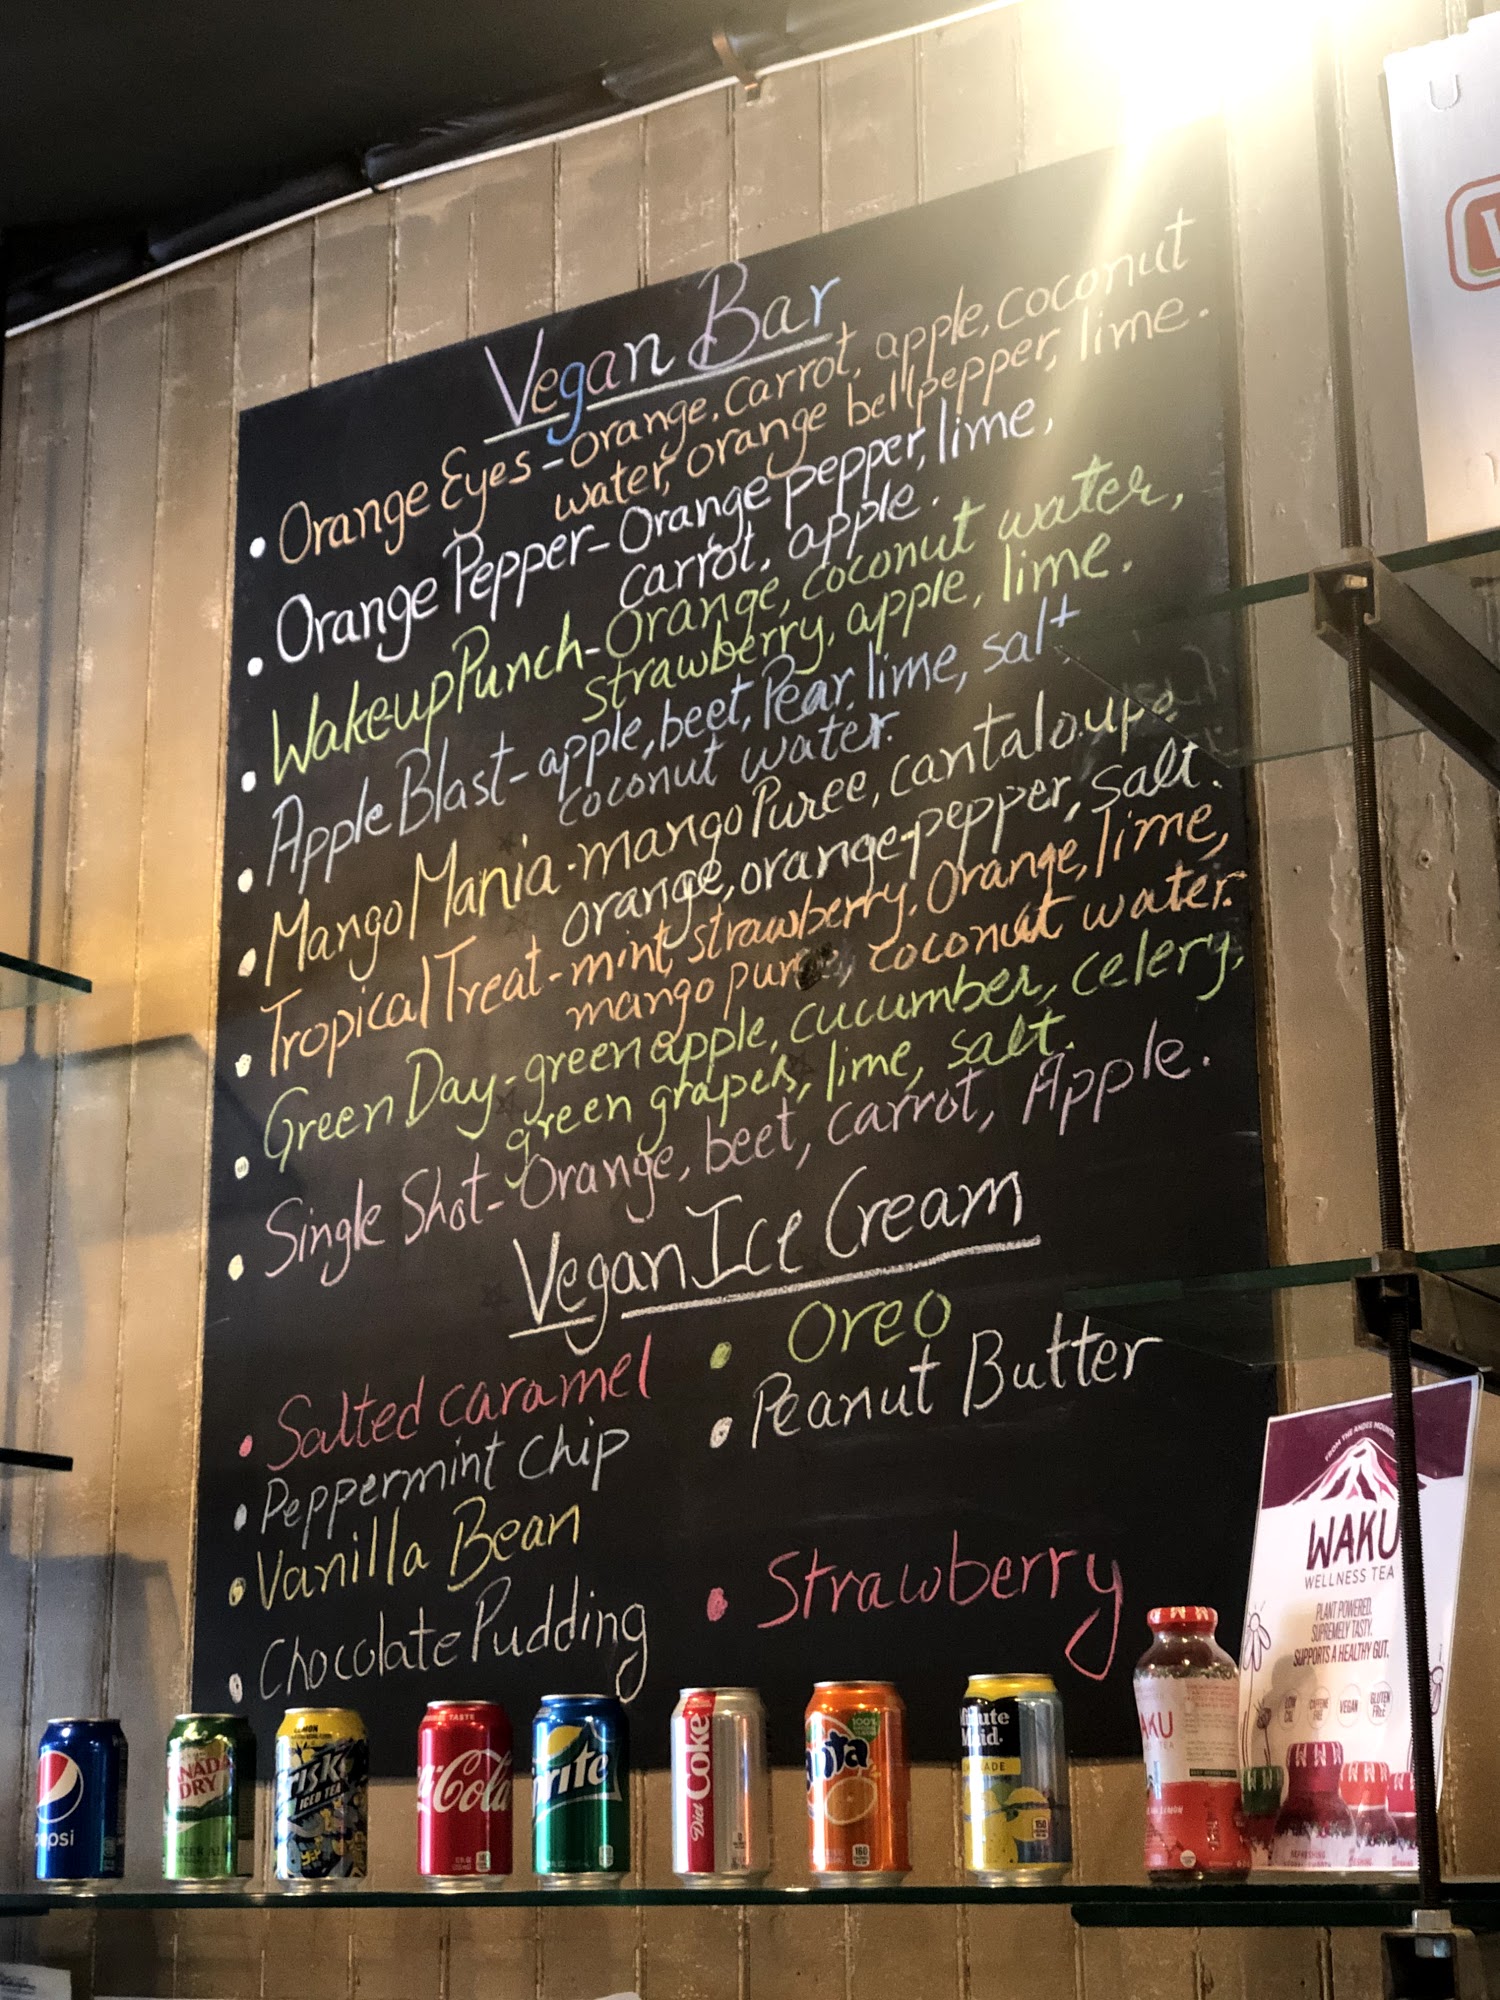 Vegan Bar
• Orange Eyes - orange, carrot, apple, coconut
water, orange bellpepper, lime.
• Orange Pepper - Orange pepper, lime,
carrot, apple.
• Wakeup Punch - Orange, coconut water,
strawberry, apple, lime.
• Apple Blast - apple, beet, Pear, lime, salt
coconut water.
• Mango Mania - mango Puree, cantaloupe
orange, orange-pepper, salt.
• Tropical Treat - mint, strawberry, Orange, lime,
mango puree, coconut water.
• Green Day - green apple, cucumber, celery,
green grapes, lime, salt.
• Single Shot - Orange, beet, carrot, Apple.
Vegan Ice Cream
• Salted caramel
• Peppermint chip
• Vanilla Bean
• Chocolate Pudding
• Oreo
• Peanut Butter
• Strawberry
FROM THE ANDES
WAKU
WELLNESS TEA
PLANT POWERED.
SUPREMELY TASTY.
SUPPORTS A HEALTHY GUT.
LOW CAL
CAFFEINE FREE
VEGAN
GLUTEN FREE
pepsi
NADA
DRY
LEMON
RISK
ICED TEA
TASTE
Coca-Cola
prite
Diet Coke
anta
100%
160
inute
Maid
ADE
150
AKU
LEMON